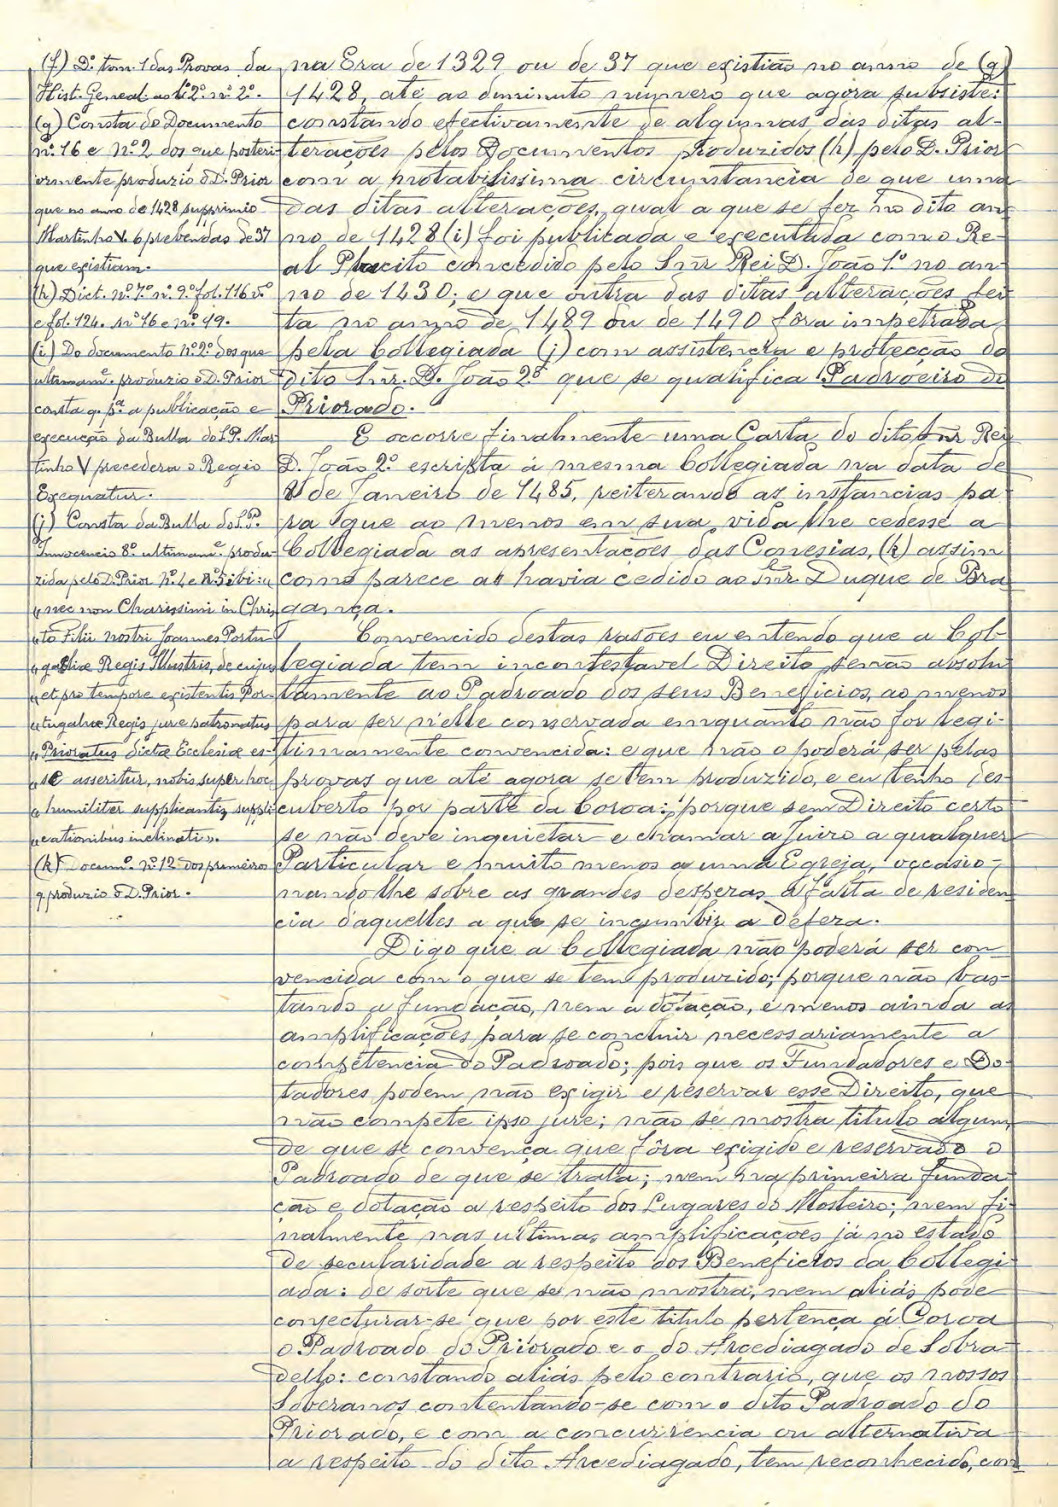 (f) D.º tom. 1 das Provas da
Hist. Geneal. ao L.º 2º. nº. 2º.
(g) Consta do Documento
nº. 16 e nº. 2 dos que posteri-
ormente produzio o D. Prior
que no anno de 1428 supprimio
Martinho V. 6 prebendas de 37
que existiam.
(h) Dict. nº. 7º. nº. 9º. fol. 116 vº
e fol. 124. nº 16 e nº. 19.
(i) Do documento nº. 2º. dos que
ultimamᵉ. produzio o D. Prior
consta q. pª. a publicação e
execução da Bulla do S. P. Mar
tinho V precedera o Regio
Exequatur.
(j) Consta da Bulla do S. P.
Innocencio 8º. ultimamᵉ. produ-
zida pelo D. Prior nº. 4 e nº. 5 ibi: "
"nec non Charissimi in Chris
"to Filii nostri Joannes Portu
"galiæ Regis Illustris, de cujus
"et pro tempore existentis Por-
"tugaliæ Regis jure patronatus
"Prioratus dictæ Ecclesiæ es-
"se asseritur, nobis super hoc
"humiliter supplicantis, suppli
"cationibus inclinati".
(k) Documº. nº. 12 dos primeiros
q. produzio o D. Prior.
na Era de 1329 ou de 37 que existião no anno de (g)
1428, até ao diminuto numero que agora subsiste:
constando efectivamente de algumas das ditas al-
terações pelos Documentos produzidos (h) pelo D. Prior
com a notabilissima circumstancia de que uma
das ditas alterações, qual a que se fez no dito an
no de 1428 (i) foi publicada e executada com o Re-
al Placito concedido pelo Snr̃ Rei D. João 1.º no an-
no de 1430; e que outra das ditas alterações fei
ta no anno de 1489 ou de 1490 fôra impetrada
pela Collegiada (j) com assistencia e protecção do
dito Snr̃. D. João 2.º que se qualifica Padroeiro do
Priorado.
E occorre finalmente uma Carta do dito Snr̃ Rei
D. João 2.º escripta á mesma Collegiada na data de
8 de Janeiro de 1485, reiterando as instancias pa-
ra que ao menos em sua vida lhe cedesse a
Collegiada as apresentações das Conesias, (k) assim
como parece as havia cedido ao Snr̃. Duque de Bra
gança.
Convencido destas rasões eu entendo que a Col-
legiada tem incontestavel Direito, senão absolu
tamente ao Padroado dos seus Beneficios, ao menos
para ser n'elle conservada emquanto não for legi-
timamente convencida: e que não o poderá ser pelas
provas que até agora se tem produzido, e eu tenho des-
cuberto por parte da Coroa: porque sem Direito certo
se não deve inquietar e chamar a Juizo a qualquer
Particular e muito menos a uma Egreja, occasio-
nando lhe sobre as grandes despezas a falta de residen
cia d'aquelles a que se incumbir a defeza.
Digo que a Collegiada não poderá ser con-
vencida com o que se tem produzido; porque não bas-
tando a fundação, nem a dotação, e menos ainda as
amplificações para se concluir necessariamente a
competencia do Padroado; pois que os Fundadores e Do-
tadores podem não exigir e reservar esse Direito, que
não compete ipso jure; não se mostra titulo algum
de que se convença que fôra exigido e reservado o
Padroado de que se trata; nem na primeira funda
ção e dotação a respeito dos Lugares do Mosteiro; nem fi-
nalmente nas ultimas amplificações já no estado
de secularidade a respeito dos Beneficios da Collegi
ada: de sorte que se não mostra, nem aliás pode
conjecturar-se que por este titulo pertença á Coroa
o Padroado do Priorado e o do Arcediagado de Sobra-
dello: constando aliás pelo contrario, que os nossos
Soberanos contentando-se com o dito Padroado do
Priorado, e com a concurrencia ou alternativa
a respeito do dito Arcediagado, tem reconhecido, con